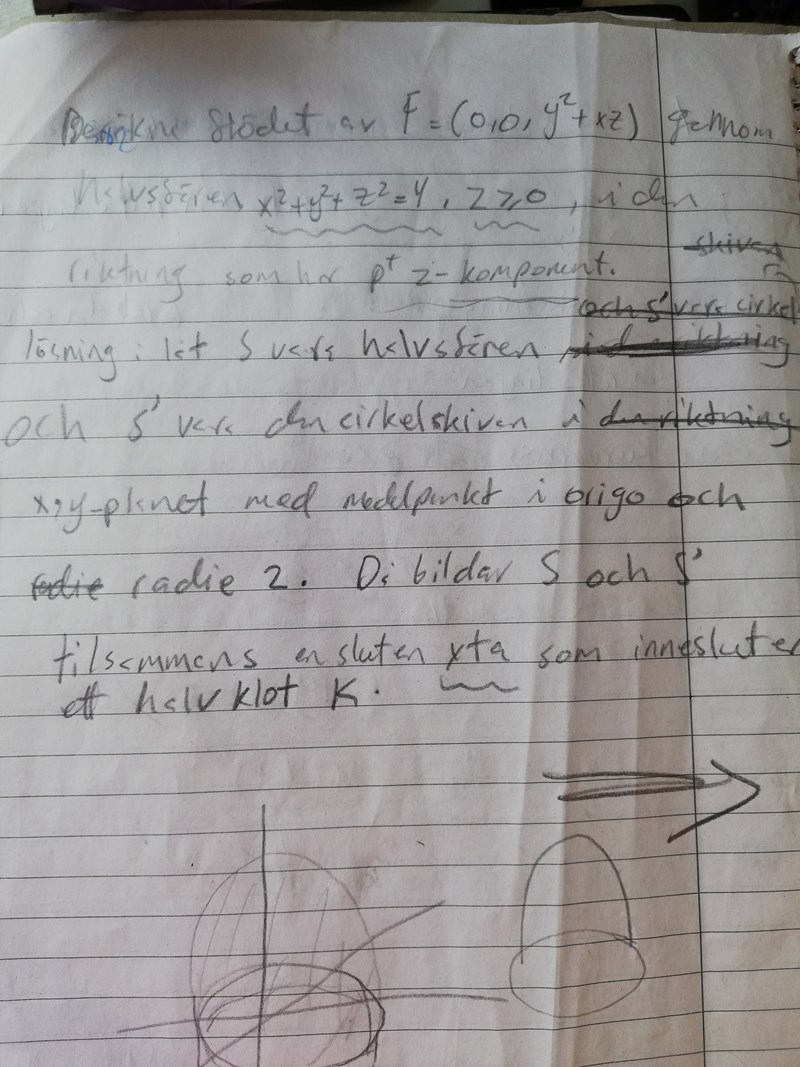 Beräkne flödet av F = (0,0, y²+xz) genom
halvsfären x²+y²+z²=4, z≥0, i den
riktning som har pt z-komponent.
skiven
och s' vara cirkel
lösning: låt S vara halvsfären
och S' vara den cirkelskiven i den riktning
x,y-planet med medelpunkt i origo och
radie radie 2. Då bildar S och S'
tilsammans en sluten yta som innesluter
ett halvklot K.